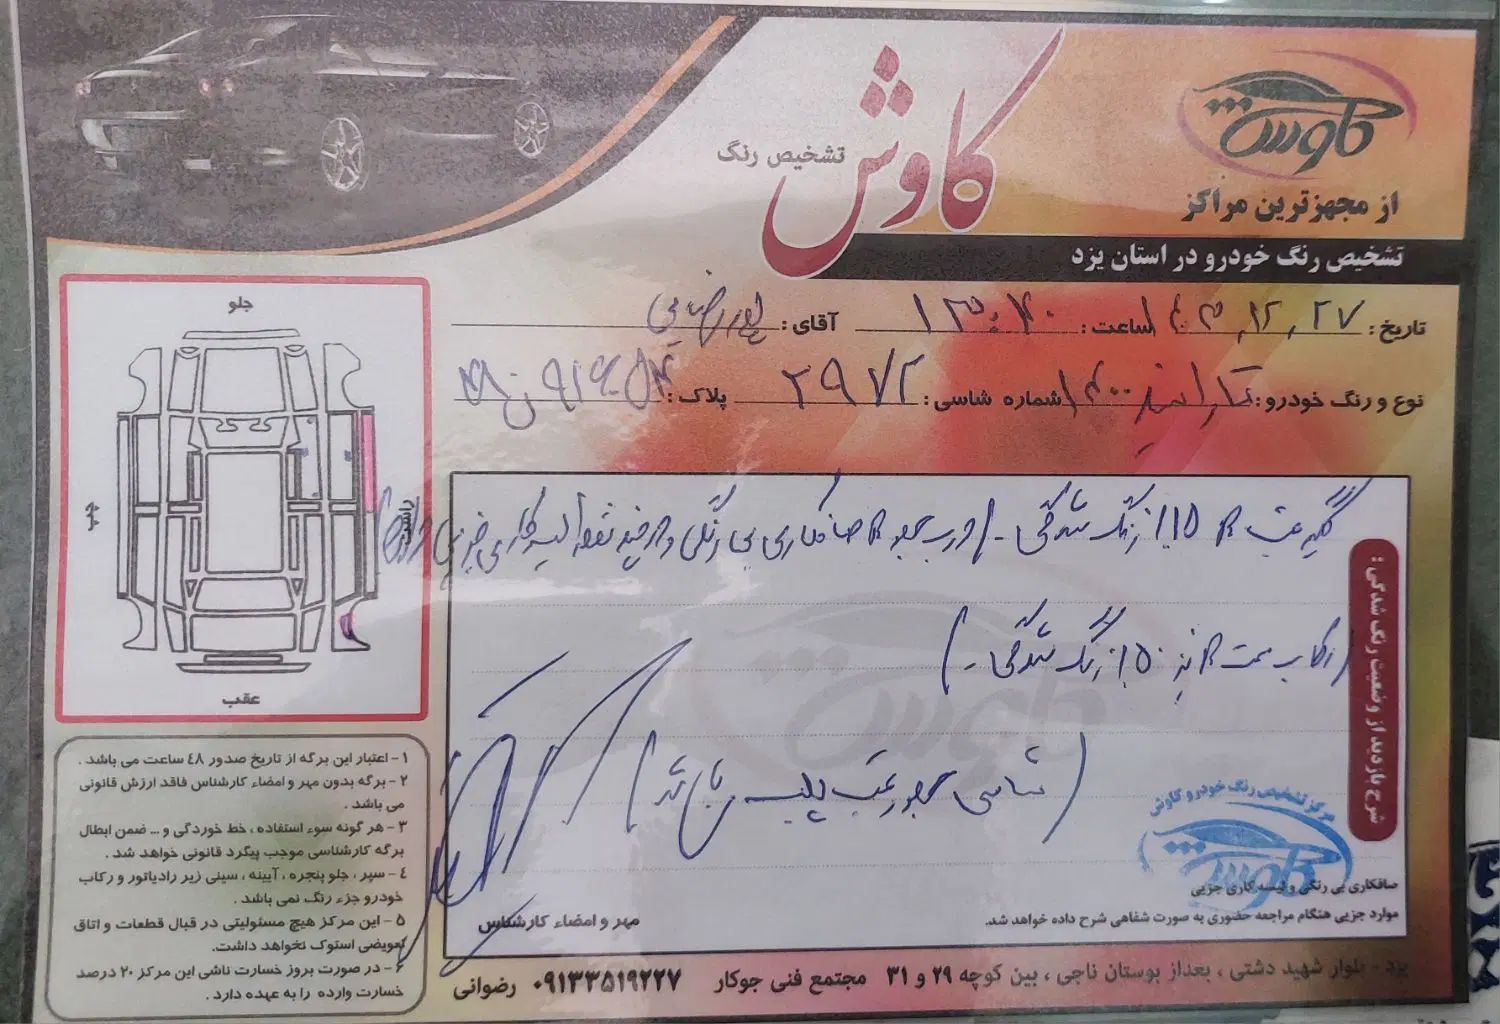 کاوش
تشخیص رنگ
کاوش
از مجهزترین مراکز
تشخیص رنگ خودرو در استان یزد
تاریخ: ۱۴۰۳,۱۲,۲۷ ساعت: ۱۳:۴۰ آقای: پوررضایی
نوع و رنگ خودرو: تارا سفید ۱۴۰۰ شماره شاسی: ۲۹۷۲ پلاک:
جلو
چپ
راست
عقب
شرح بازدید از وضعیت رنگ شدگی:
گلگیر عقب R ۱۵٪ رنگ شدگی - / درب جلو R صافکاری بی رنگی و چند نقطه لیسه کاری جزیی
رکاب سمت R نیز ۵۰٪ رنگ شدگی - )
( شاسی جلو و عقب پلمپ می باشد )
مرکز تشخیص رنگ خودرو کاوش
کاوش
صافکاری بی رنگی و لیسه کاری جزیی
موارد جزیی هنگام مراجعه حضوری به صورت شفاهی شرح داده خواهد شد.
مهر و امضاء کارشناس
۱- اعتبار این برگه از تاریخ صدور ۴۸ ساعت می باشد .
۲- برگه بدون مهر و امضاء کارشناس فاقد ارزش قانونی
می باشد .
۳- هر گونه سوء استفاده ، خط خوردگی و ... ضمن ابطال
برگه کارشناسی موجب پیگرد قانونی خواهد شد .
۴- سپر ، جلو پنجره ، آیینه ، سینی زیر رادیاتور و رکاب
خودرو جزء رنگ نمی باشد .
۵- این مرکز هیچ مسئولیتی در قبال قطعات و اتاق
تعویضی استوک نخواهد داشت.
۶- در صورت بروز خسارت ناشی این مرکز ۲۰ درصد
خسارت وارده را به عهده دارد .
یزد - بلوار شهید دشتی ، بعداز بوستان ناجی ، بین کوچه ۲۹ و ۳۱ مجتمع فنی جوکار ۰۹۱۳۳۵۱۹۲۲۷ رضوانی